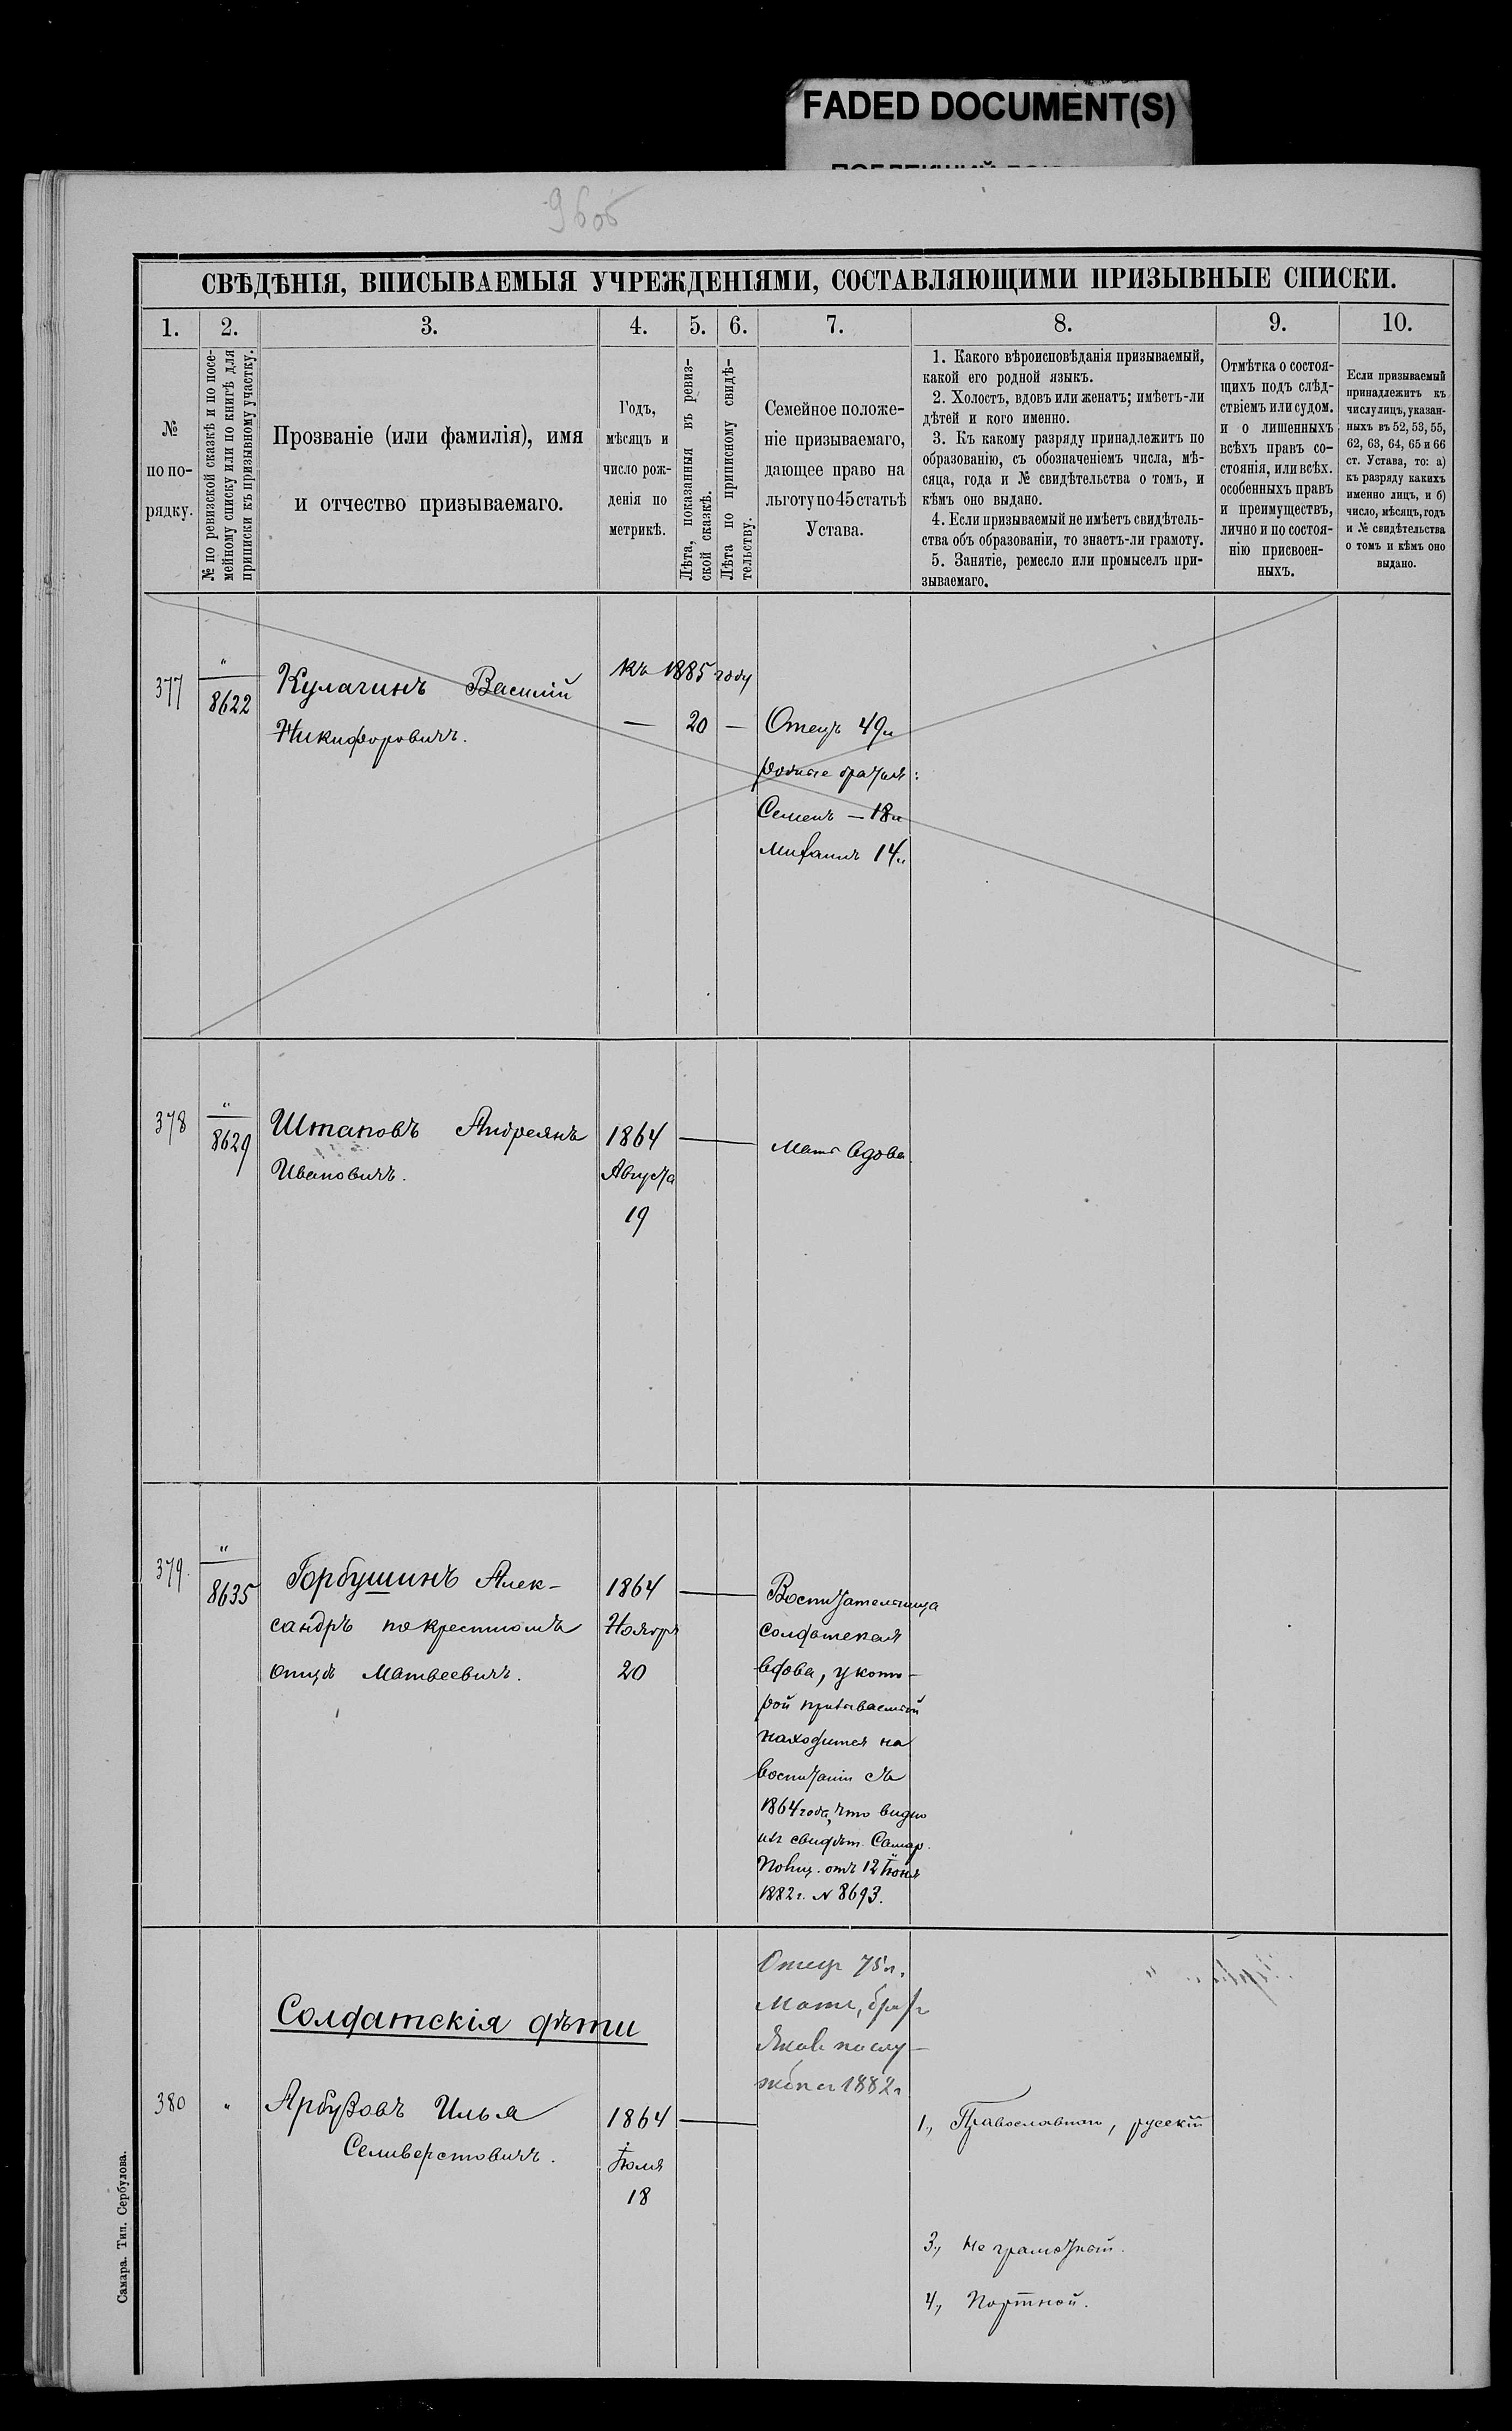 FADED DOCUMENT(S)
960б
СВѢДѢНІЯ, ВПИСЫВАЕМЫЯ УЧРЕЖДЕНІЯМИ, СОСТАВЛЯЮЩИМИ ПРИЗЫВНЫЕ СПИСКИ.
1. 2. 3. 4. 5. 6. 7. 8. 9. 10.
№
по по-
рядку.
№ по ревизской сказкѣ и по посе-
мейному списку или по книгѣ для
приписки къ призывному участку.
Прозваніе (или фамилія), имя
и отчество призываемаго.
Годъ,
мѣсяцъ и
число рож-
денія по
метрикѣ.
Лѣта, показанныя въ ревиз-
ской сказкѣ.
Лѣта по приписному свидѣ-
тельству.
Семейное положе-
ніе призываемаго,
дающее право на
льготу по 45 статьѣ
Устава.
1. Какого вѣроисповѣданія призываемый,
какой его родной языкъ.
2. Холостъ, вдовъ или женатъ; имѣетъ-ли
дѣтей и кого именно.
3. Къ какому разряду принадлежитъ по
образованію, съ обозначеніемъ числа, мѣ-
сяца, года и № свидѣтельства о томъ, и
кѣмъ оно выдано.
4. Если призываемый не имѣетъ свидѣтель-
ства объ образованіи, то знаетъ-ли грамоту.
5. Занятіе, ремесло или промыселъ при-
зываемаго.
Отмѣтка о состоя-
щихъ подъ слѣд-
ствіемъ или судом.
и о лишенныхъ
всѣхъ правъ со-
стоянія, или всѣх.
особенныхъ правъ
и преимуществъ,
лично и по состоя-
нію присвоен-
ныхъ.
Если призываемый
принадлежитъ къ
числу лицъ, указан-
ныхъ въ 52, 53, 55,
62, 63, 64, 65 и 66
ст. Устава, то: а)
къ разряду какихъ
именно лицъ, и б)
число, мѣсяцъ, годъ
и № свидѣтельства
о томъ и кѣмъ оно
выдано.
377
"
8622
Кулагинъ Василій
Никифоровичъ.
къ 1885 году
— 20 —
Отецъ 49л
родные братья:
Семенъ — 18л
Михаилъ 14л
378
"
8629
Штаповъ Андреянъ
Ивановичъ.
1864
Августа
19
Мать вдова.
379.
"
8635
Горбушинъ Алек-
сандръ по крестному
отцу Матвеевичъ.
1864
Ноября
20
Воспитательница
солдатская
вдова, у кото-
рой призываемый
находится на
воспитаніи съ
1864 года, что видно
изъ свидѣт. Самар.
Полиц. отъ 12 Іюня
1882 г. № 8693.
Солдатскія дѣти
380
"
Арбузовъ Илья
Селиверстовичъ.
1864
Іюля
18
Отецъ 75л.
Мать, братъ
Яковъ на слу-
жбѣ съ 1882г
1., Православнаго, русскій
3., Не грамотный.
4., Портной.
Самара. Тип. Сербулова.